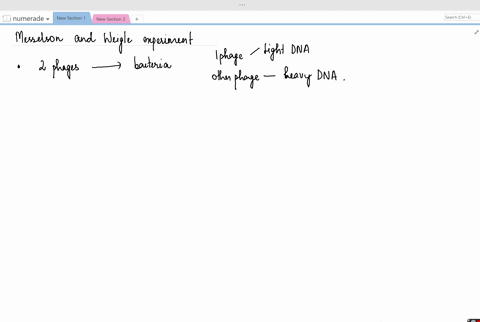 numerade
New Section 1
New Section 2
+
Search (Ctrl+E)
Messelson and Weigle experiment
• 2 phages → bacteria
1 phage / light DNA
other phage — heavy DNA .